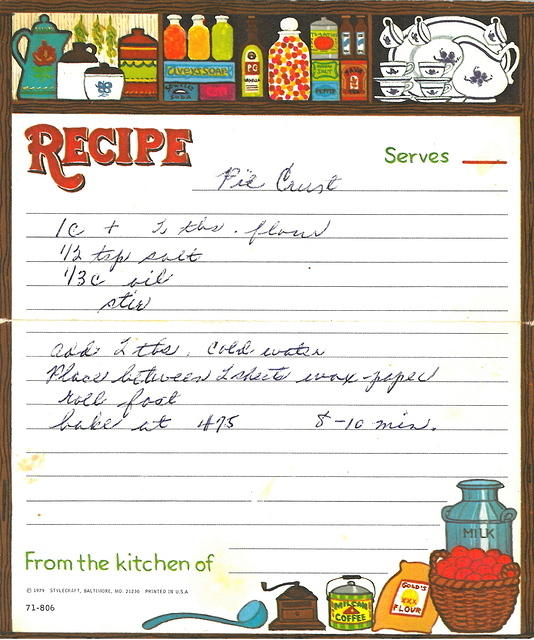 AVEYS SOAP
SODA
PG
VANILLA
TOMATOE
SALT
PEPPER
RECIPE
Serves
Pie Crust
1c + 2 tbs. flour
1/2 tsp salt
1/3c oil
stir
add 2 tbs. cold water
Place between 2 sheets wax-paper
roll fast
bake at 475 8-10 min.
MILK
From the kitchen of
GOLD'S
XXX
FLOUR
COFFEE
© 1979 STYLECRAFT, BALTIMORE, MD. 21230 PRINTED IN U.S.A
71-806